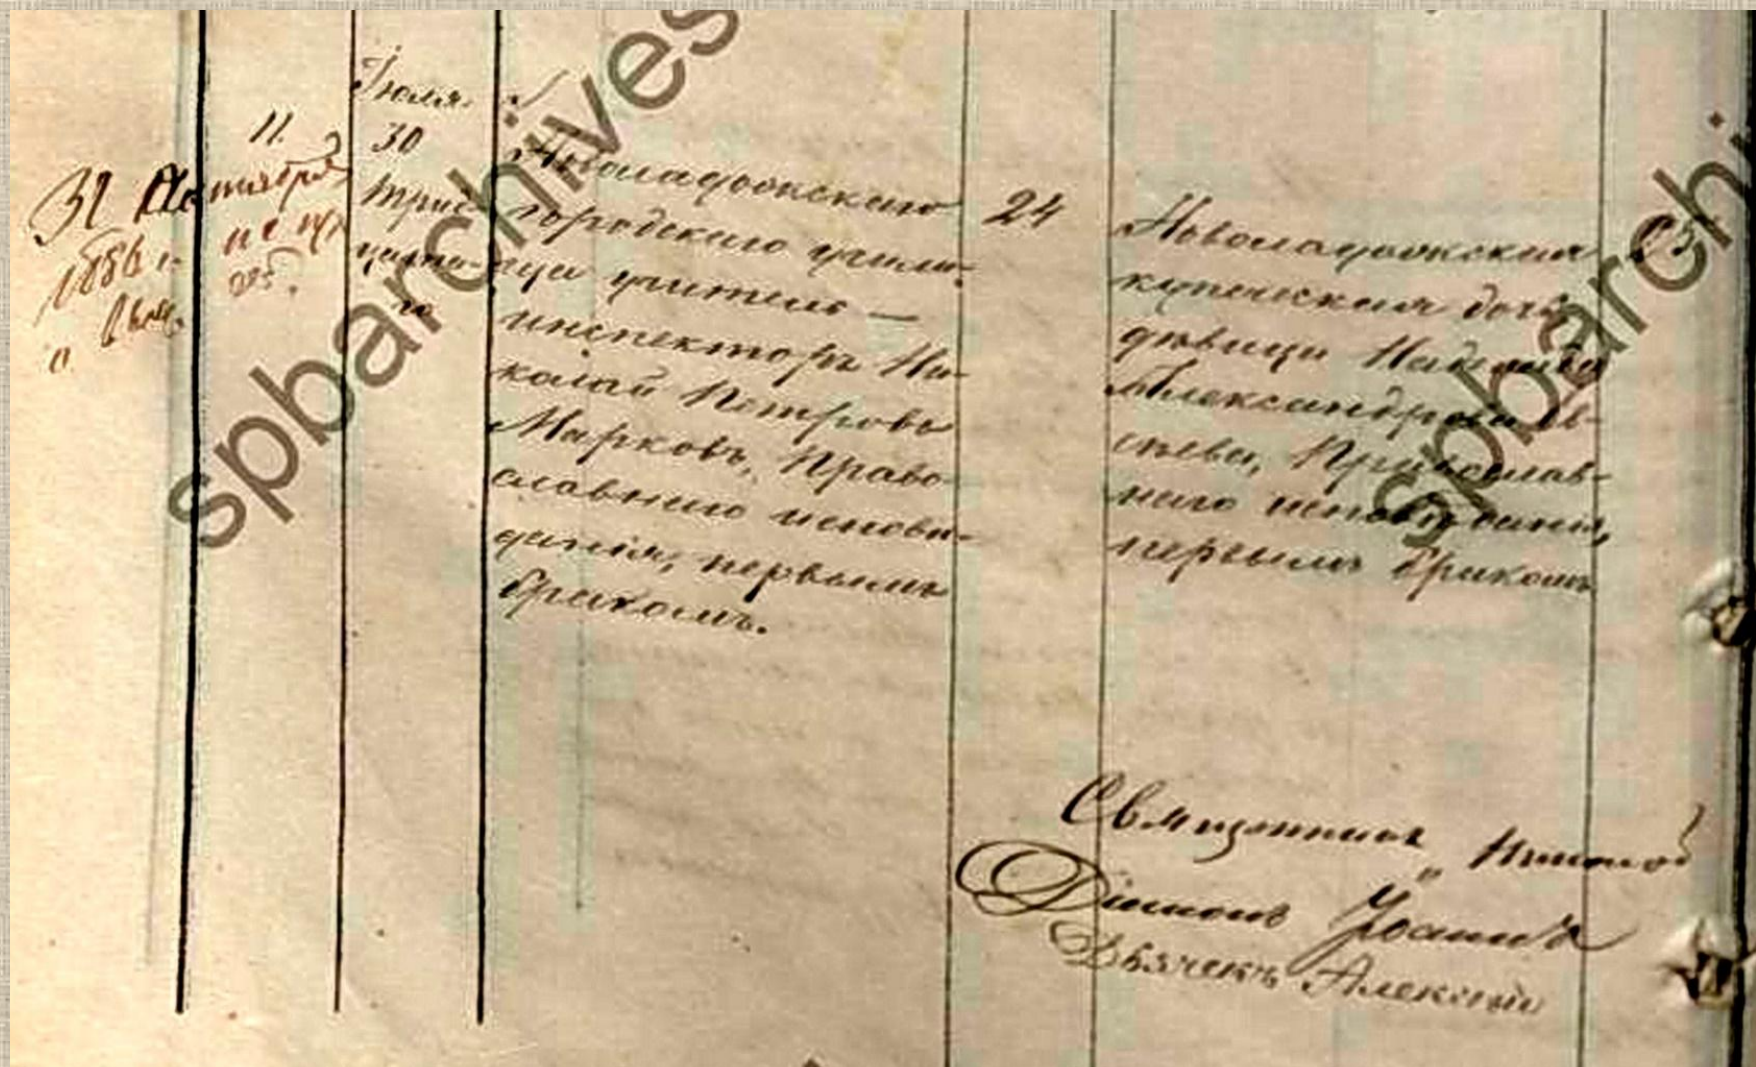 Іюля
11.
30
31 Октября
1886 г.
трид
цата
го
Новоладожскаго
городскаго учили-
ща учитель —
инспекторъ Ни-
колай Петровъ
Марковъ, Право-
славнаго исповѣ-
данія, первымъ
бракомъ.
24
Новоладожская
купеческая дочь
дѣвица Надежда
Александрова Ев-
сѣева, Православ-
наго исповѣданія,
первымъ бракомъ
Священникъ Николай
Діаконъ Іоаннъ
Дьячекъ Алексѣй
spbarchives
spbarchi